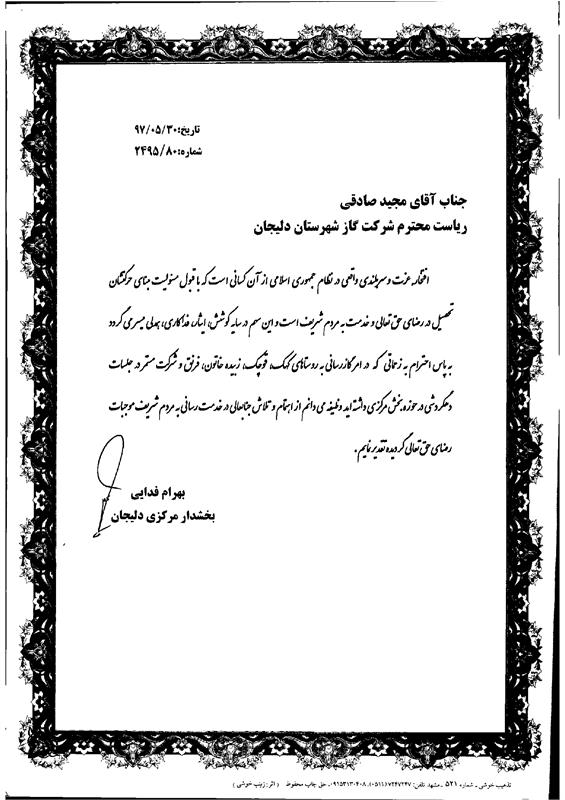 تاریخ:۹۷/۰۵/۳۰
شماره:۲۴۹۵/۸۰
جناب آقای مجید صادقی
ریاست محترم شرکت گاز شهرستان دلیجان
افتخار، عزت و سربلندی واقعی در نظام جمهوری اسلامی از آن کسانی است که با قبول مسئولیت مبنای حرکتشان
تحصیل در رضای حق تعالی و خدمت به مردم شریف است و این مهم در سایه کوشش، ایثار، فداکاری، همدلی میسر می گردد
به پاس احترام به زحماتی که در امر گازرسانی به روستاهای کهک، قوچک، زبیده خاتون، فرنق و شرکت مستمر در جلسات
دهگردشی در حوزه بخش مرکزی داشته اید وظیفه می دانم از اهتمام و تلاش جنابعالی در خدمت رسانی به مردم شریف موجبات
رضای حق تعالی گردیده تقدیر نمایم.
بهرام فدایی
بخشدار مرکزی دلیجان
تذهیب خوشی - شماره ۵۲۱ - مشهد تلفن: ۷۲۴۷۲۴۷ (۰۵۱۱) - ۰۹۱۵۳۱۳۰۴۰۸ حق چاپ محفوظ (اثر: زینب خوشی)